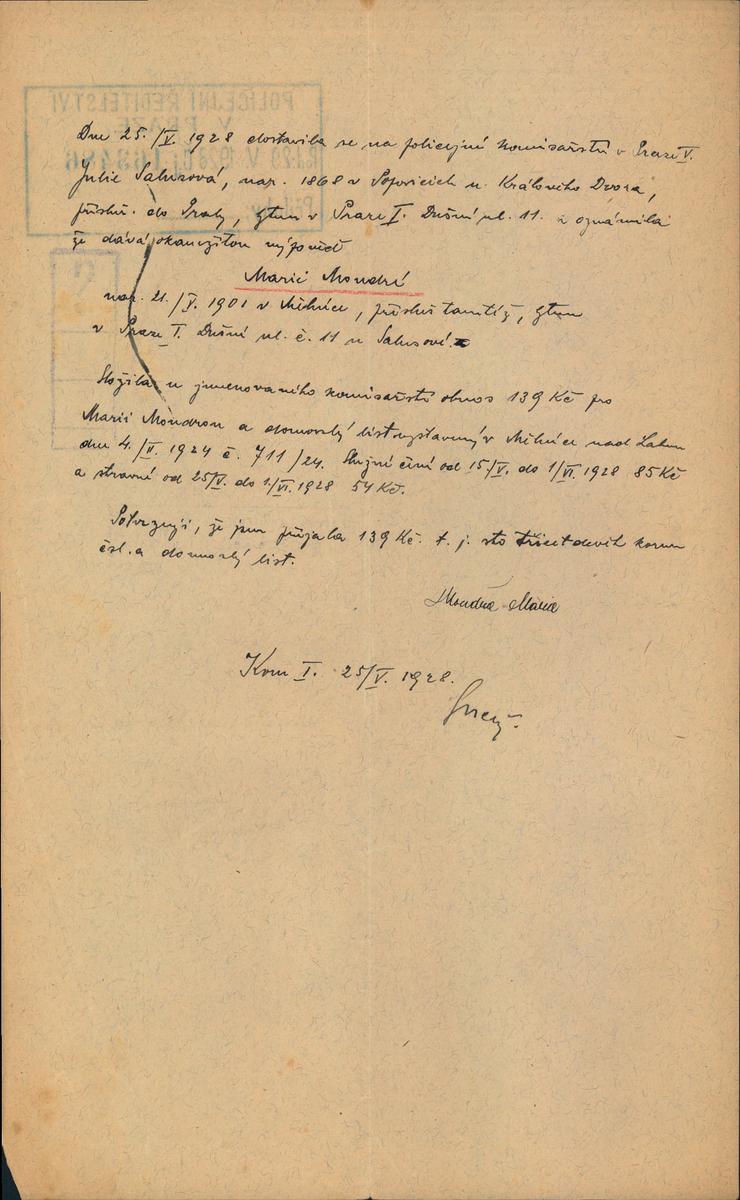 POLICEJNÍ ŘEDITELSTVÍ
V PRAZE
Dne 25./V. 1928 dostavila se na policejní komisařství v Praze V.
Julie Salusová, nar. 1868 v Popovicích u Králového Dvora,
přísluš. do Prahy, bytem v Praze I. Dušní ul. 11. a oznámila
že dává okamžitou výpověď
Marii Mondré
nar. 21./V. 1901 v Mělníce, přísluš tamtéž, bytem
v Praze I. Dušní ul. č. 11 u Salusové.
Složila u jmenovaného komisařství obnos 139 Kč pro
Marii Mondrou a domovský list vystavený v Mělníce nad Labem
dne 4./II. 1924 č. 711/24. Služné činí od 15/V. do 1/VI. 1928 85 Kč
a stravné od 25/V. do 1./VI. 1928 54 Kč.
Potvrzuji, že jsem přijala 139 Kč. t. j. sto třicet devět korun
čsl. a domovský list.
Mondrá Marie
Kom I. 25/V. 1928.